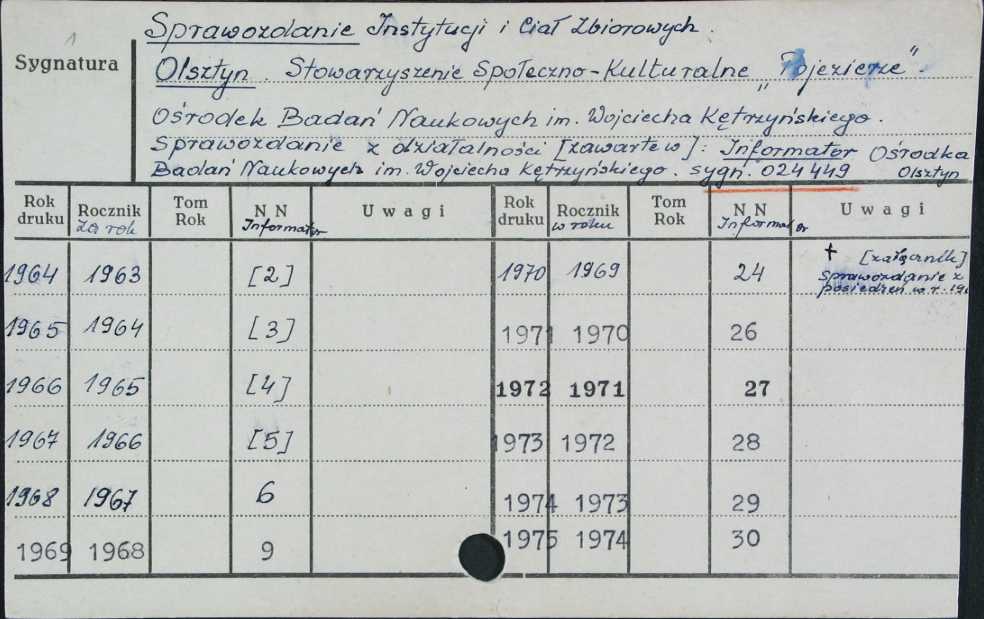 Sprawozdanie Instytucji i Ciał Zbiorowych.
1
Sygnatura
Olsztyn. Stowarzyszenie Społeczno-Kulturalne „Pojezierze".
Ośrodek Badań Naukowych im. Wojciecha Kętrzyńskiego.
Sprawozdanie z działalności [zawarte w]: Informator Ośrodka
Badań Naukowych im. Wojciecha Kętrzyńskiego. sygn. 024449 Olsztyn
Rok druku Rocznik za rok Tom Rok NN Informator Uwagi Rok druku Rocznik w roku Tom Rok NN Informator Uwagi
1964 1963 [2] 1970 1969 24 + [załącznik] Sprawozdanie z posiedzeń w r. 19
1965 1964 [3] 1971 1970 26
1966 1965 [4] 1972 1971 27
1967 1966 [5] 1973 1972 28
1968 1967 6 1974 1973 29
1969 1968 9 1975 1974 30